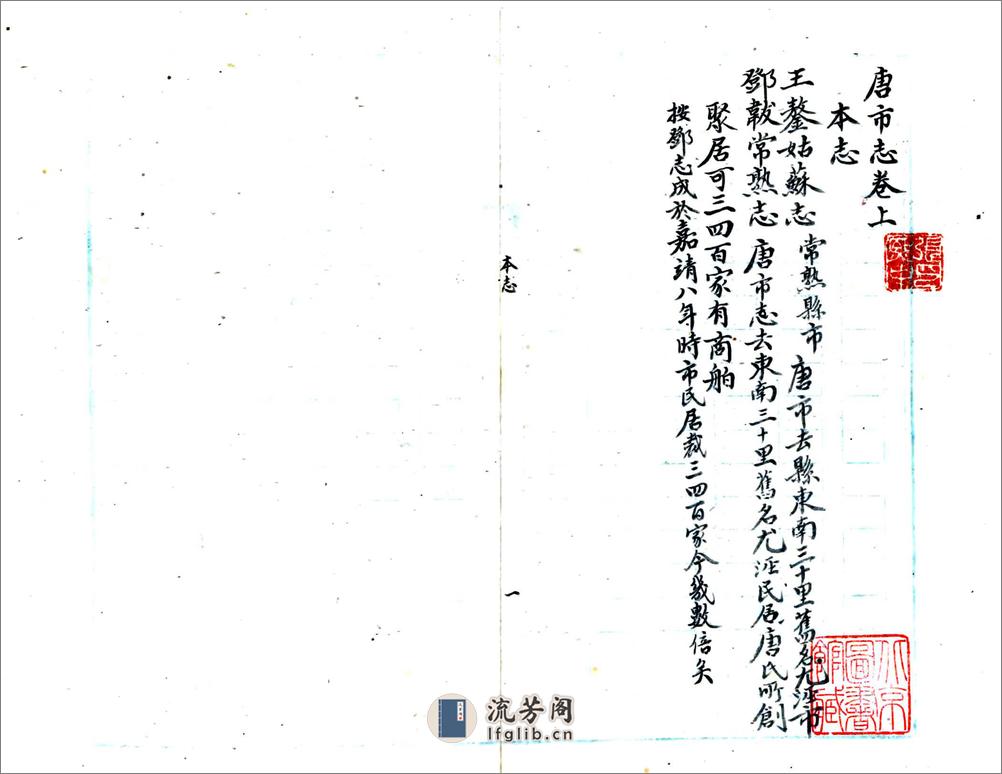 唐市志卷上
本志
王鏊姑蘇志 常熟縣市 唐市去縣東南三十里舊名尤涇市
鄧韍常熟志 唐市志去東南三十里舊名尤涇民居唐氏所創
聚居可三四百家有商舶
按鄧志成於嘉靖八年時市民居裁三四百家今幾數倍矣
本志
一
北京
圖書
館藏
流芳阁
lfglib.cn